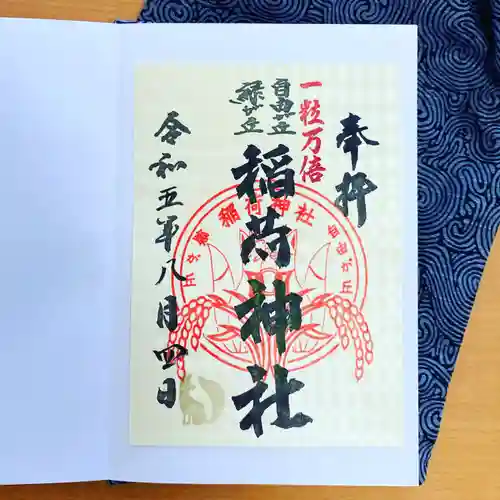 奉拝
一粒万倍
自由が丘
緑が丘
稲荷神社
令和五年八月四日
稲荷神社
自由が丘
緑が丘